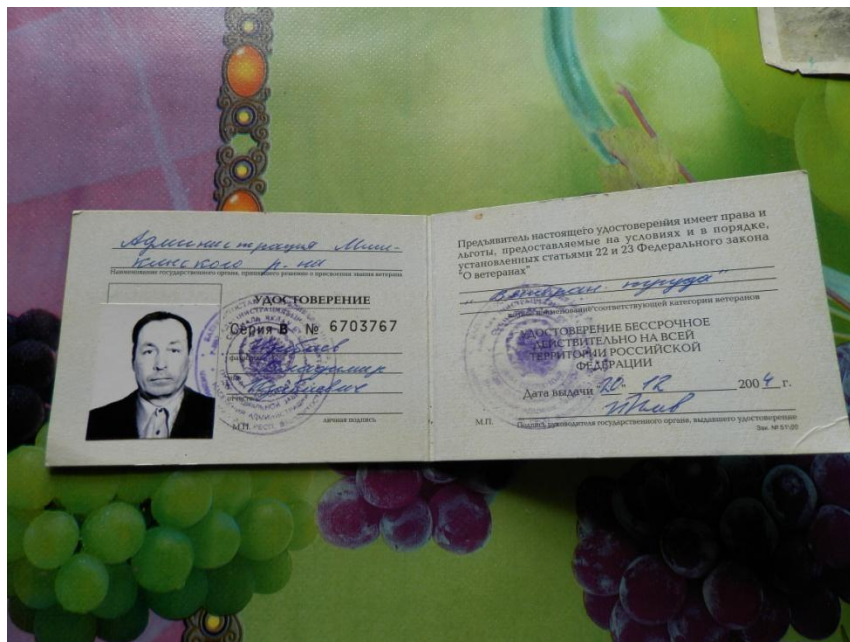 Администрация Миш-
кинского р-на
Наименование государственного органа, принявшего решение о присвоении звания ветерана
УДОСТОВЕРЕНИЕ
Серия В № 6703767
Владимир
М.П.
личная подпись
Предъявитель настоящего удостоверения имеет права и
льготы, предоставляемые на условиях и в порядке,
установленных статьями 22 и 23 Федерального закона
"О ветеранах"
"Ветеран труда"
наименование соответствующей категории ветеранов
УДОСТОВЕРЕНИЕ БЕССРОЧНОЕ
ДЕЙСТВИТЕЛЬНО НА ВСЕЙ
ТЕРРИТОРИИ РОССИЙСКОЙ
ФЕДЕРАЦИИ
Дата выдачи 20. 12 2004 г.
М.П.
Подпись руководителя государственного органа, выдавшего удостоверение
Зак. № 57-20